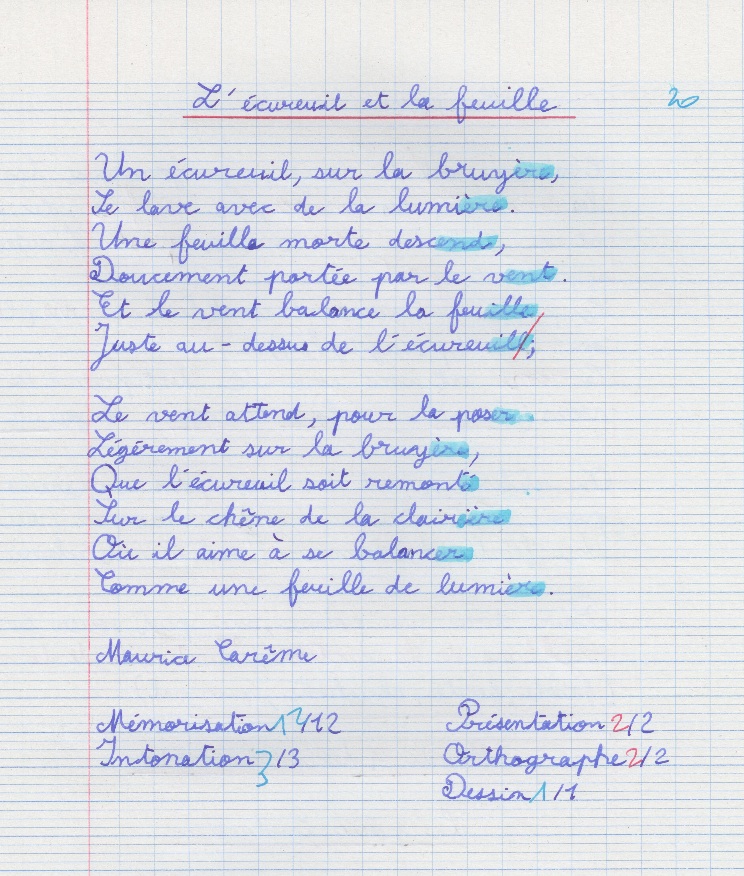 L'écureuil et la feuille 20
Un écureuil, sur la bruyère,
Se lave avec de la lumière.
Une feuille morte descend,
Doucement portée par le vent.
Et le vent balance la feuille
Juste au-dessus de l'écureuil;
Le vent attend, pour la poser
Légèrement sur la bruyère,
Que l'écureuil soit remonté
Sur le chêne de la clairière
Où il aime à se balancer
Comme une feuille de lumière.
Maurice Carême
Mémorisation 12/12 Présentation 2/2
Intonation 3/3 Orthographe 2/2
Dessin 1/1